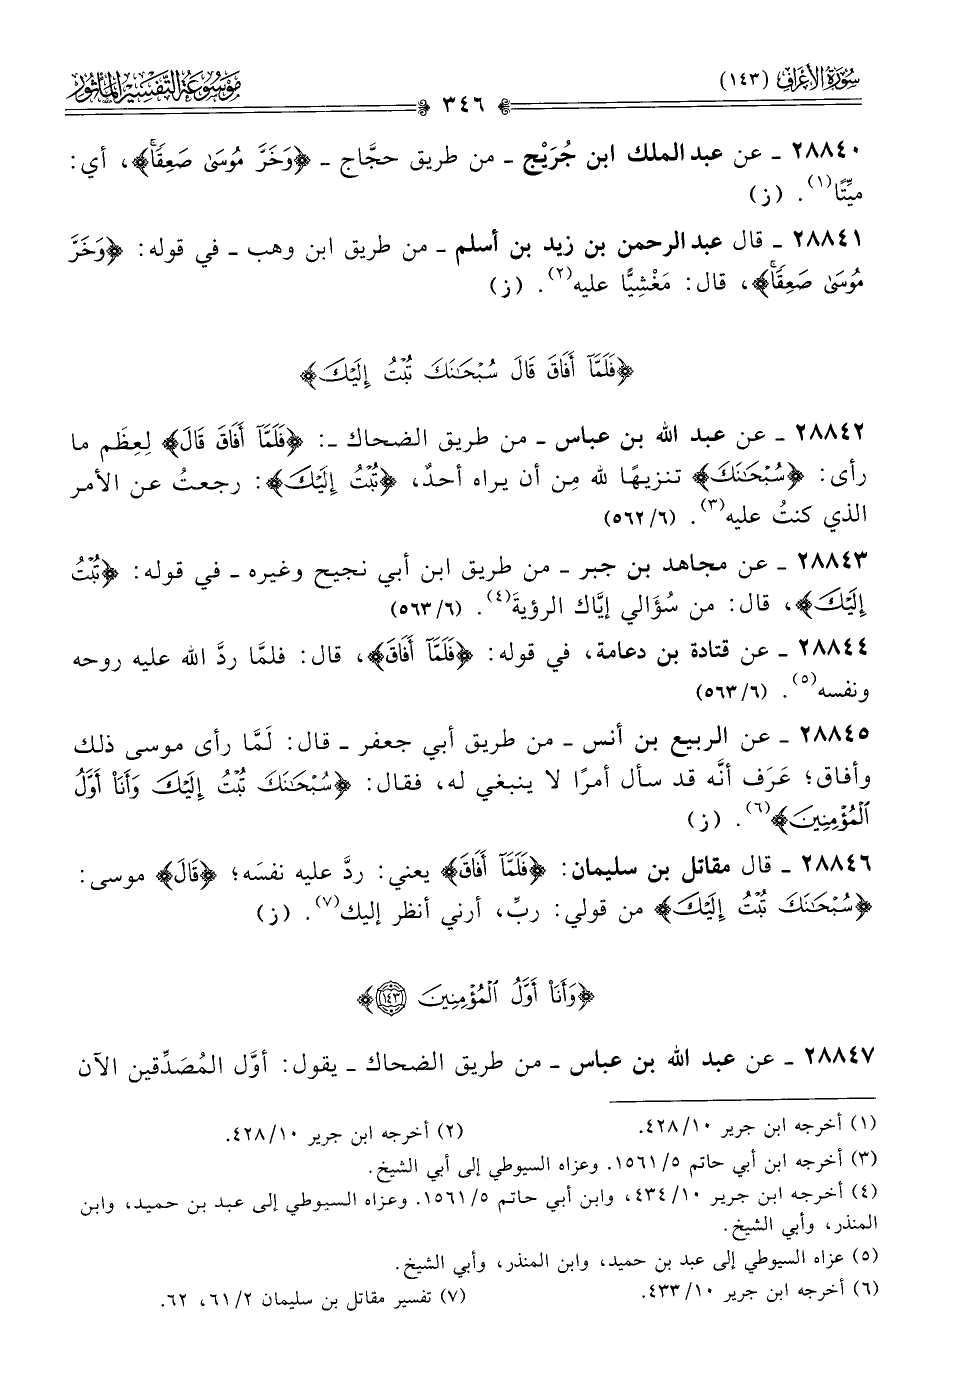 سورة الأعراف (١٤٣)
٣٤٦
موسوعة التفسير المأثور
٢٨٨٤٠ - عن عبد الملك ابن جُرَيْج - من طريق حجَّاج - ﴿وَخَرَّ مُوسَىٰ صَعِقًاۚ﴾، أي:
ميِّتًا(١). (ز)
٢٨٨٤١ - قال عبد الرحمن بن زيد بن أسلم - من طريق ابن وهب - في قوله: ﴿وَخَرَّ
مُوسَىٰ صَعِقًاۚ﴾، قال: مَغْشِيًّا عليه(٢). (ز)
﴿فَلَمَّآ أَفَاقَ قَالَ سُبْحَٰنَكَ تُبْتُ إِلَيْكَ﴾
٢٨٨٤٢ - عن عبد الله بن عباس - من طريق الضحاك -: ﴿فَلَمَّآ أَفَاقَ قَالَ﴾ لِعِظَم ما
رأى: ﴿سُبْحَٰنَكَ﴾ تنزيهًا لله مِن أن يراه أحدٌ، ﴿تُبْتُ إِلَيْكَ﴾: رجعتُ عن الأمر
الذي كنتُ عليه(٣). (٥٦٢/٦)
٢٨٨٤٣ - عن مجاهد بن جبر - من طريق ابن أبي نجيح وغيره - في قوله: ﴿تُبْتُ
إِلَيْكَ﴾، قال: من سُؤالي إيَّاك الرؤيةَ(٤). (٥٦٣/٦)
٢٨٨٤٤ - عن قتادة بن دعامة، في قوله: ﴿فَلَمَّآ أَفَاقَ﴾، قال: فلمَّا ردَّ الله عليه روحه
ونفسه(٥). (٥٦٣/٦)
٢٨٨٤٥ - عن الربيع بن أنس - من طريق أبي جعفر - قال: لَمَّا رأى موسى ذلك
وأفاق؛ عَرَف أنَّه قد سأل أمرًا لا ينبغي له، فقال: ﴿سُبْحَٰنَكَ تُبْتُ إِلَيْكَ وَأَنَا۠ أَوَّلُ
ٱلْمُؤْمِنِينَ﴾(٦). (ز)
٢٨٨٤٦ - قال مقاتل بن سليمان: ﴿فَلَمَّآ أَفَاقَ﴾ يعني: ردَّ عليه نفسَه؛ ﴿قَالَ﴾ موسى:
﴿سُبْحَٰنَكَ تُبْتُ إِلَيْكَ﴾ من قولي: ربِّ، أرني أنظر إليك(٧). (ز)
﴿وَأَنَا۠ أَوَّلُ ٱلْمُؤْمِنِينَ ١٤٣﴾
٢٨٨٤٧ - عن عبد الله بن عباس - من طريق الضحاك - يقول: أوَّل المُصَدِّقين الآن
(١) أخرجه ابن جرير ٤٢٨/١٠. (٢) أخرجه ابن جرير ٤٢٨/١٠.
(٣) أخرجه ابن أبي حاتم ١٥٦١/٥. وعزاه السيوطي إلى أبي الشيخ.
(٤) أخرجه ابن جرير ٤٣٤/١٠، وابن أبي حاتم ١٥٦١/٥. وعزاه السيوطي إلى عبد بن حميد، وابن
المنذر، وأبي الشيخ.
(٥) عزاه السيوطي إلى عبد بن حميد، وابن المنذر، وأبي الشيخ.
(٦) أخرجه ابن جرير ٤٣٣/١٠. (٧) تفسير مقاتل بن سليمان ٦١/٢، ٦٢.